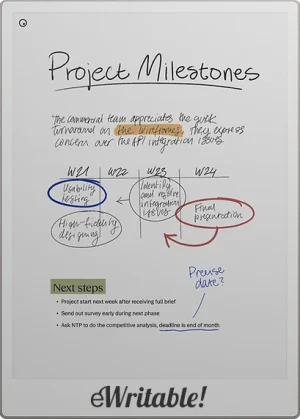 Project Milestones
The commercial team appreciates the quick
turnaround on the wireframes, they express
concern over the API integration issues
W21 W22 W23 W24
Usability
testing
Identify
and resolve
integration
issues
Final
presentation
High-fidelity
designing
Precise
date?
Next steps
• Project start next week after receiving full brief
• Send out survey early during next phase
• Ask NTP to do the competitive analysis, deadline is end of month
eWritable!